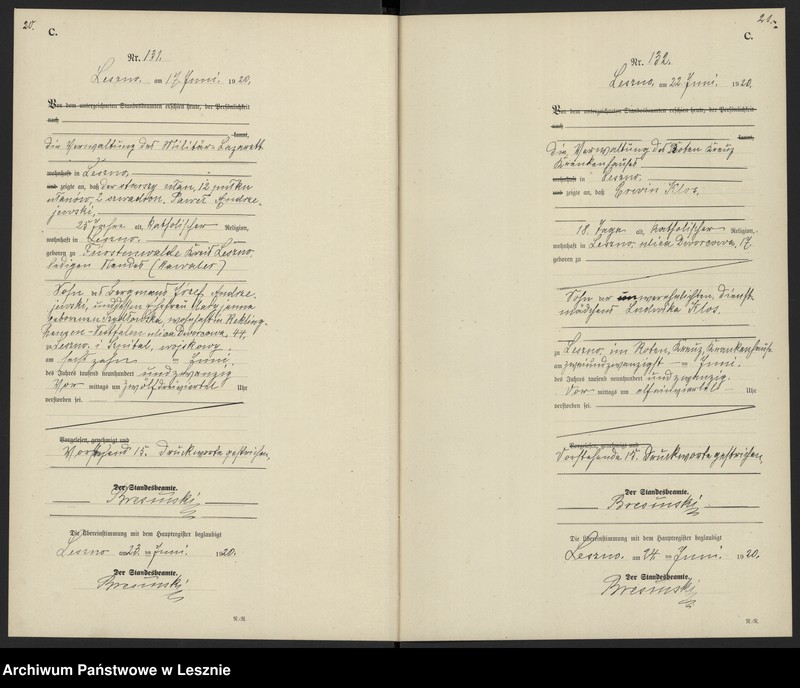 20.
C.
Nr. 131.
Leszno, am 17. Juni 1920.
Vor dem unterzeichneten Standesbeamten erschien heute, der Persönlichkeit
nach
kannt,
die Verwaltung des Militär-Lazarett
wohnhaft in Leszno,
und zeigte an, daß der starszy ułan, 12 pułku
ułanów, 2 szwadron, Paweł Andrze-
jewski,
25 Jahre alt, katholischer Religion,
wohnhaft in Leszno
geboren zu Fürstenwalde Kreis Leszno
ledigen Standes (kawaler)
Sohn des Bergmanns Józef Andrze-
jewski, und dessen Ehefrau
geborenen Szydłowska, wohnhaft in Rekling-
hausen-Westfalen ulica Dworcowa 44,
zu Leszno i Szpital wojskowy
am sechszehn ten Juni
des Jahres tausend neunhundert und zwanzig
Vor mittags um zwölfdreiviertel Uhr
verstorben sei.
Vorgelesen, genehmigt und
Vorstehend 15. Druckworte gestrichen.
Der Standesbeamte.
Bresinski
Die Übereinstimmung mit dem Hauptregister beglaubigt
Leszno am 23. ten Juni 1920.
Der Standesbeamte.
Bresinski
N.-R.
21.
C.
Nr. 132.
Leszno, am 22. Juni 1920.
Vor dem unterzeichneten Standesbeamten erschien heute, der Persönlichkeit
nach
kannt,
die Verwaltung des Roten Kreuz
Krankenhauses
wohnhaft in Leszno.
und zeigte an, daß Erwin Klos,
18. Tage alt, katholischer Religion,
wohnhaft in Leszno ulica Dworcowa 17.
geboren zu
Sohn der unverehelichten Dienst-
mädchens Ludwika Klos.
zu Leszno, im Roten Kreuz Krankenhause
am zweiundzwanzigst ten Juni
des Jahres tausend neunhundert und zwanzig
Vor mittags um elfeinviertel Uhr
verstorben sei.
Vorgelesen, genehmigt und
Vorstehende 15. Druckworte gestrichen.
Der Standesbeamte.
Bresinski
Die Übereinstimmung mit dem Hauptregister beglaubigt
Leszno, am 24. ten Juni 1920.
Der Standesbeamte.
Bresinski
N.-R.
Archiwum Państwowe w Lesznie